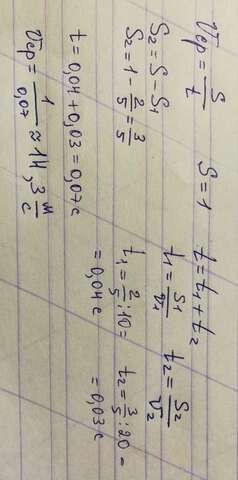 Vср = S/t    S = 1    t = t₁ + t₂
S₂ = S - S₁    t₁ = S₁/v₁    t₂ = S₂/v₂
S₂ = 1 - 2/5 = 3/5    t₁ = 2/5 : 10 =    t₂ = 3/5 : 20 =
= 0,04 с    = 0,03 с
t = 0,04 + 0,03 = 0,07 с
Vср = 1/0,07 ≈ 14,3 м/с